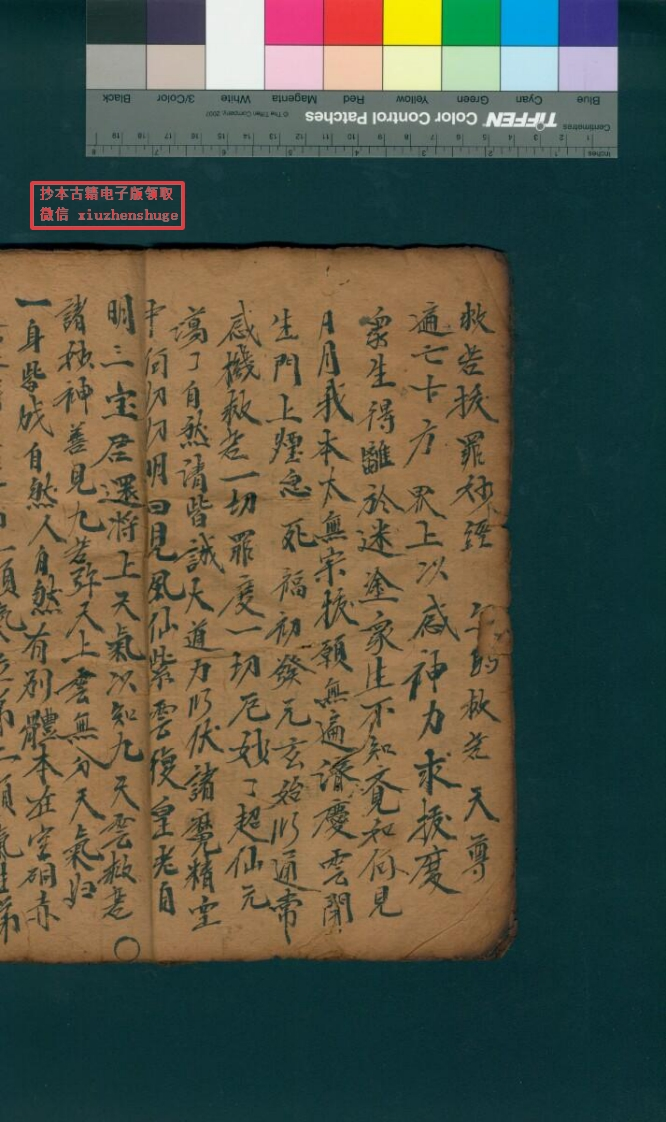 Blue
Cyan
Green
Yellow
Red
Magenta
White
3/Color
Black
TIFFEN Color Control Patches
© The Tiffen Company, 2007
Centimetres
1 2 3 4 5 6 7 8 9 10 11 12 13 14 15 16 17 18 19
Inches
抄本古籍电子版领取
微信 xiuzhenshuge
救苦拔罪妙經 救苦天尊
遍亡十方界上以感神力求拔度
衆生得離於迷途衆生不知竟如何見
日月我本太無宗拔願無邊濟慶雲開
生門上煙急死福初發元玄始以通帝
感機救苦一切罪度一切厄妙了超仙元
蕩了自然請皆誠天道力以伏諸魔精空
中何切切明曰見風仙紫雲復皇老自
明三宝君還將上天氣次知九天雲救苦
諸神善見九苦弥天上雲無分天氣归
一身皆成自然人自然有別體本在空硐赤